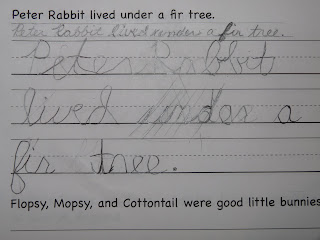 Peter Rabbit lived under a fir tree.
Peter Rabbit lived under a fir tree.
Peter Rabbit
lived under a
fir tree.
Flopsy, Mopsy, and Cottontail were good little bunnies